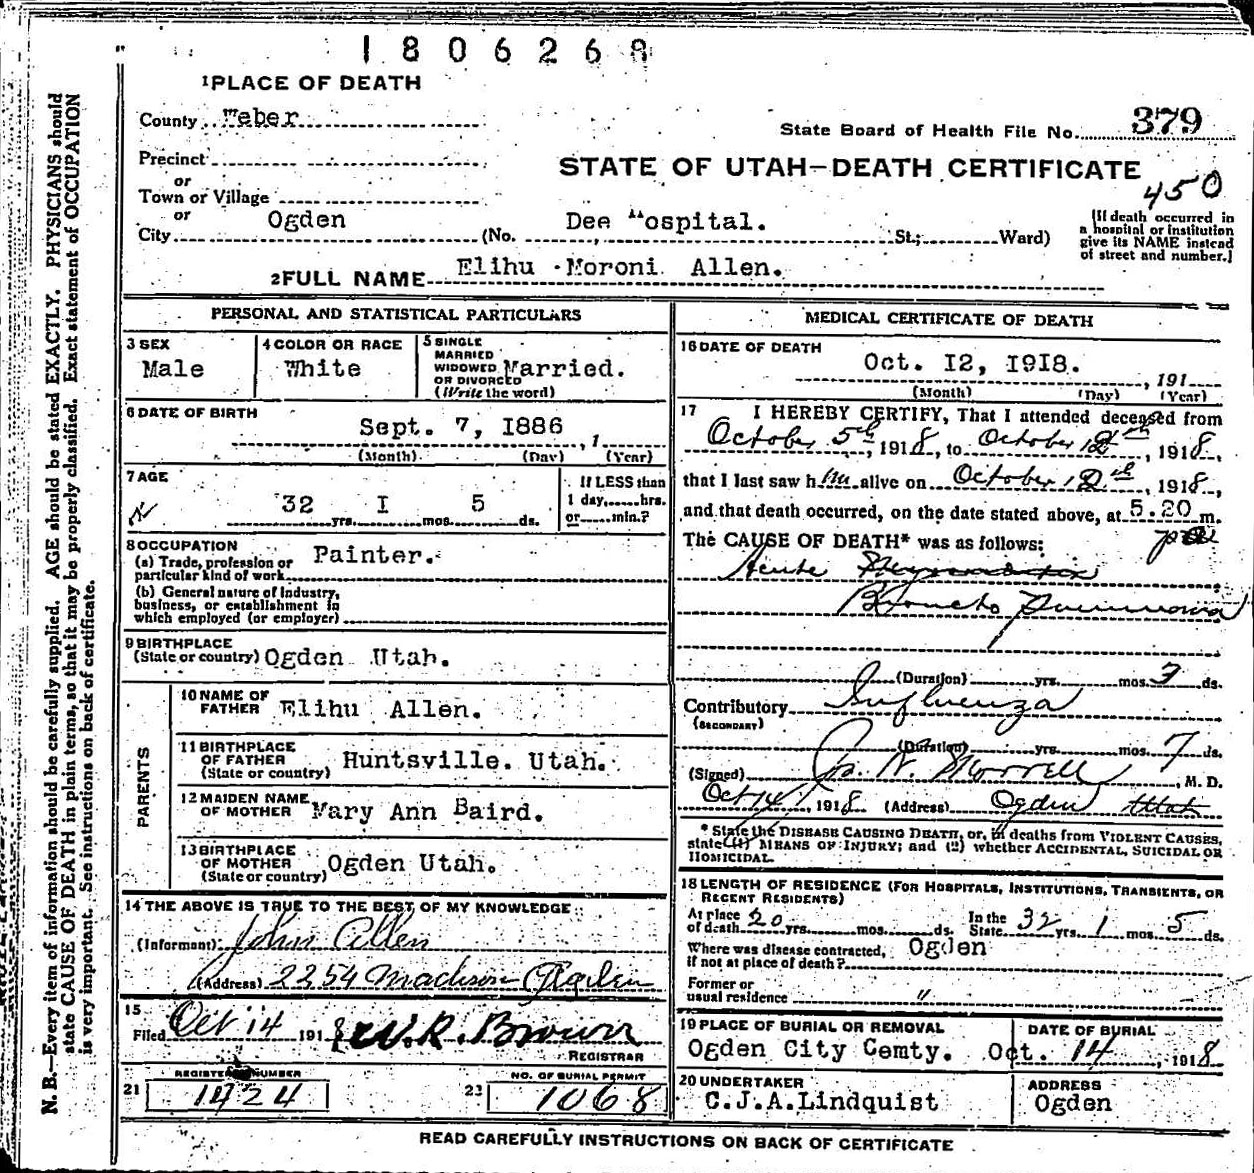 1806268
1 PLACE OF DEATH
County Weber
State Board of Health File No. 379
Precinct
or
STATE OF UTAH—DEATH CERTIFICATE
450
Town or Village
or
City Ogden (No. Dee Hospital. St.; Ward)
(If death occurred in
a hospital or institution
give its NAME instead
of street and number.)
2 FULL NAME Elihu Moroni Allen.
PERSONAL AND STATISTICAL PARTICULARS
3 SEX
Male
4 COLOR OR RACE
White
5 SINGLE
MARRIED
WIDOWED
OR DIVORCED
(Write the word)
Married.
6 DATE OF BIRTH
Sept. 7, 1886 , 1
(Month) (Day) (Year)
7 AGE
32 yrs. I mos. 5 ds.
If LESS than
1 day,......hrs.
or......min.?
8 OCCUPATION
(a) Trade, profession or
particular kind of work Painter.
(b) General nature of Industry,
business, or establishment in
which employed (or employer)
9 BIRTHPLACE
(State or country) Ogden Utah.
PARENTS
10 NAME OF
FATHER Elihu Allen.
11 BIRTHPLACE
OF FATHER
(State or country) Huntsville. Utah.
12 MAIDEN NAME
OF MOTHER Mary Ann Baird.
13 BIRTHPLACE
OF MOTHER
(State or country) Ogden Utah.
14 THE ABOVE IS TRUE TO THE BEST OF MY KNOWLEDGE
(Informant) John Allen
(Address) 2254 Madison Ogden
15
Filed Oct 14 1918 W.R. Brown
REGISTRAR
REGISTERED NUMBER
21 1424
NO. OF BURIAL PERMIT
23 1068
MEDICAL CERTIFICATE OF DEATH
16 DATE OF DEATH
Oct. 12, 1918. , 191
(Month) (Day) (Year)
17 I HEREBY CERTIFY, That I attended deceased from
October 5th, 1918, to October 12th, 1918,
that I last saw him alive on October 12th, 1918,
and that death occurred, on the date stated above, at 5.20 m.
The CAUSE OF DEATH* was as follows:
Acute
Broncho Pneumonia
(Duration) yrs. mos. 3 ds.
Contributory Influenza
(SECONDARY)
(Duration) yrs. mos. 7 ds.
(Signed) M. D.
Oct 14, 1918 (Address) Ogden Utah
* State the DISEASE CAUSING DEATH, or, in deaths from VIOLENT CAUSES,
state (1) MEANS OF INJURY; and (2) whether ACCIDENTAL, SUICIDAL OR
HOMICIDAL.
18 LENGTH OF RESIDENCE (FOR HOSPITALS, INSTITUTIONS, TRANSIENTS, OR
RECENT RESIDENTS)
At place
of death 20 yrs. mos. ds.
In the
State 32 yrs. 1 mos. 5 ds.
Where was disease contracted,
if not at place of death? Ogden
Former or
usual residence "
19 PLACE OF BURIAL OR REMOVAL
Ogden City Cemty.
DATE OF BURIAL
Oct. 14, 1918
20 UNDERTAKER
C.J.A.Lindquist
ADDRESS
Ogden
READ CAREFULLY INSTRUCTIONS ON BACK OF CERTIFICATE
N. B.—Every item of information should be carefully supplied. AGE should be stated EXACTLY. PHYSICIANS should
state CAUSE OF DEATH in plain terms, so that it may be properly classified. Exact statement of OCCUPATION
is very important. See instructions on back of certificate.